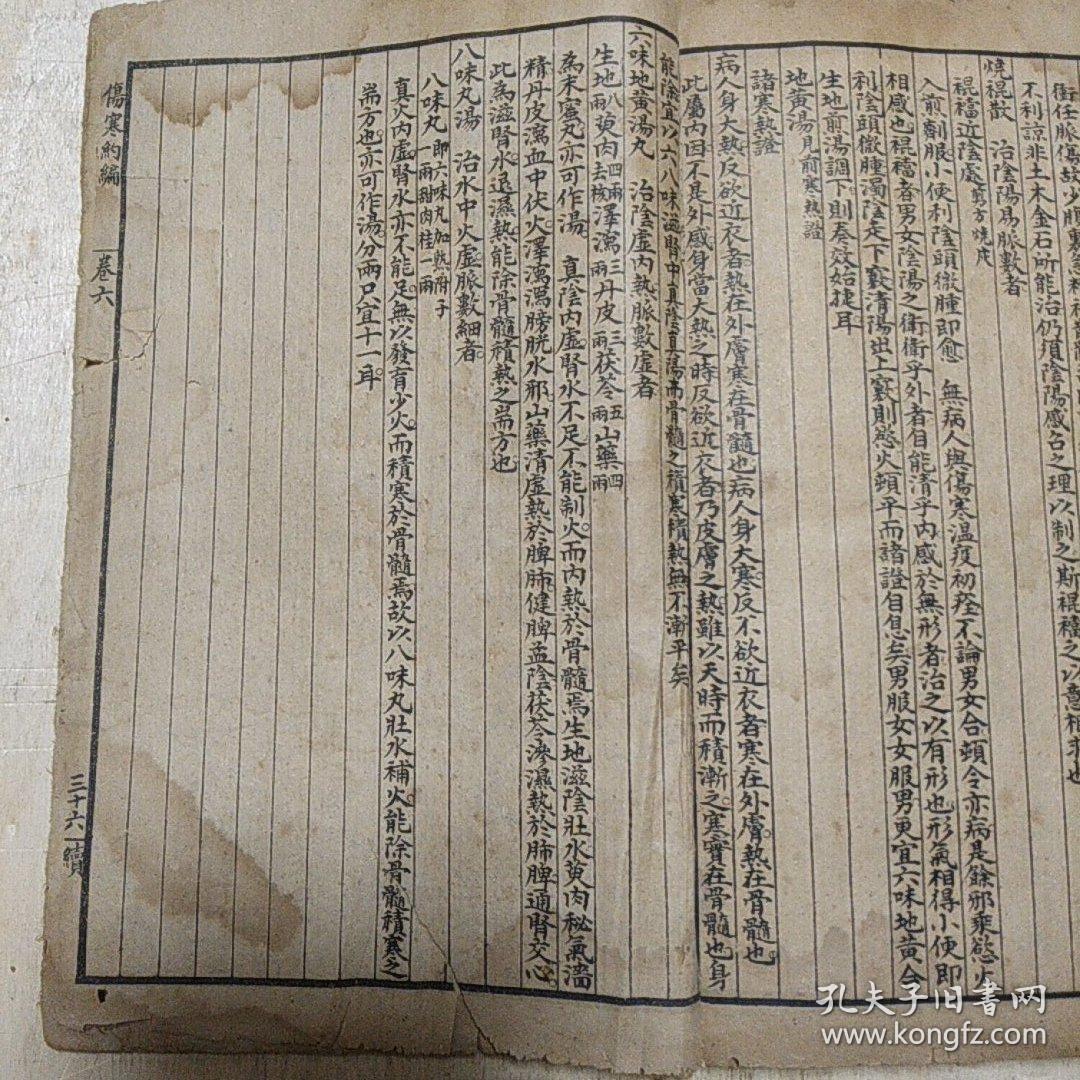 衝任脈傷故少腹裏急
不利諒非土木金石所能治仍須陰陽感召之理以制之斯裩襠之以意相求也
燒裩散 治陰陽易脈數者
裩襠近陰處剪方燒灰
入前劑服小便利陰頭微腫即愈 無病人與傷寒溫疫初痊不論男女合頓令亦病是餘邪乘慾火
相感也裩襠者男女陰陽之衛衛乎外者自能清乎內感於無形者治之以有形也形氣相得小便即
利陰頭微腫濁陰走下竅清陽出上竅則慾火頓平而諸證自息矣男服女女服男更宜六味地黃合
生地前湯調下則奏效始捷耳
地黃湯見前寒熱證
諸寒熱證
病人身大熱反欲近衣者熱在外膚寒在骨髓也病人身大寒反不欲近衣者寒在外膚熱在骨髓也
此屬內因不是外感身當大熱之時反欲近衣者乃皮膚之熱雖以天時而積漸之寒實在骨髓也身
能除宜以六八味滋腎中真陰真陽而骨髓之積寒積熱無不漸平矣
六味地黃湯丸 治陰虛內熱脈數虛者
生地八兩萸肉四兩去核澤瀉三兩丹皮三兩茯苓五兩山藥四兩
為末蜜丸亦可作湯 真陰內虛腎水不足不能制火而內熱於骨髓焉生地滋陰壯水萸肉秘氣濇
精丹皮瀉血中伏火澤瀉瀉膀胱水邪山藥清虛熱於脾肺健脾孟陰茯苓滲濕熱於肺脾通腎交心
此為滋腎水退濕熱能除骨髓積熱之耑方也
八味丸湯 治水中火虛脈數細者
八味丸即六味丸加熟附子一兩甜肉桂一兩
真火內虛腎水亦不能足無以發育少火而積寒於骨髓焉故以八味丸壯水補火能除骨髓積寒之
耑方也亦可作湯分兩只宜十一耳
傷寒約編 卷六 三十六 續
孔夫子旧书网
www.kongfz.com